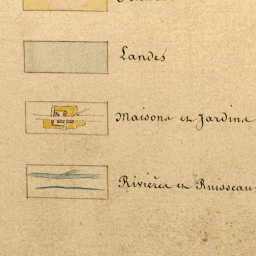 Landes
Maisons et Jardins
Rivières et Ruisseau